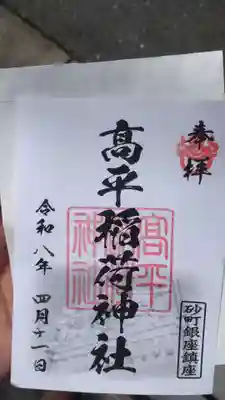 奉拝
砂町銀座鎮座
髙平稲荷神社
髙平
神社
令和八年 四月十一日